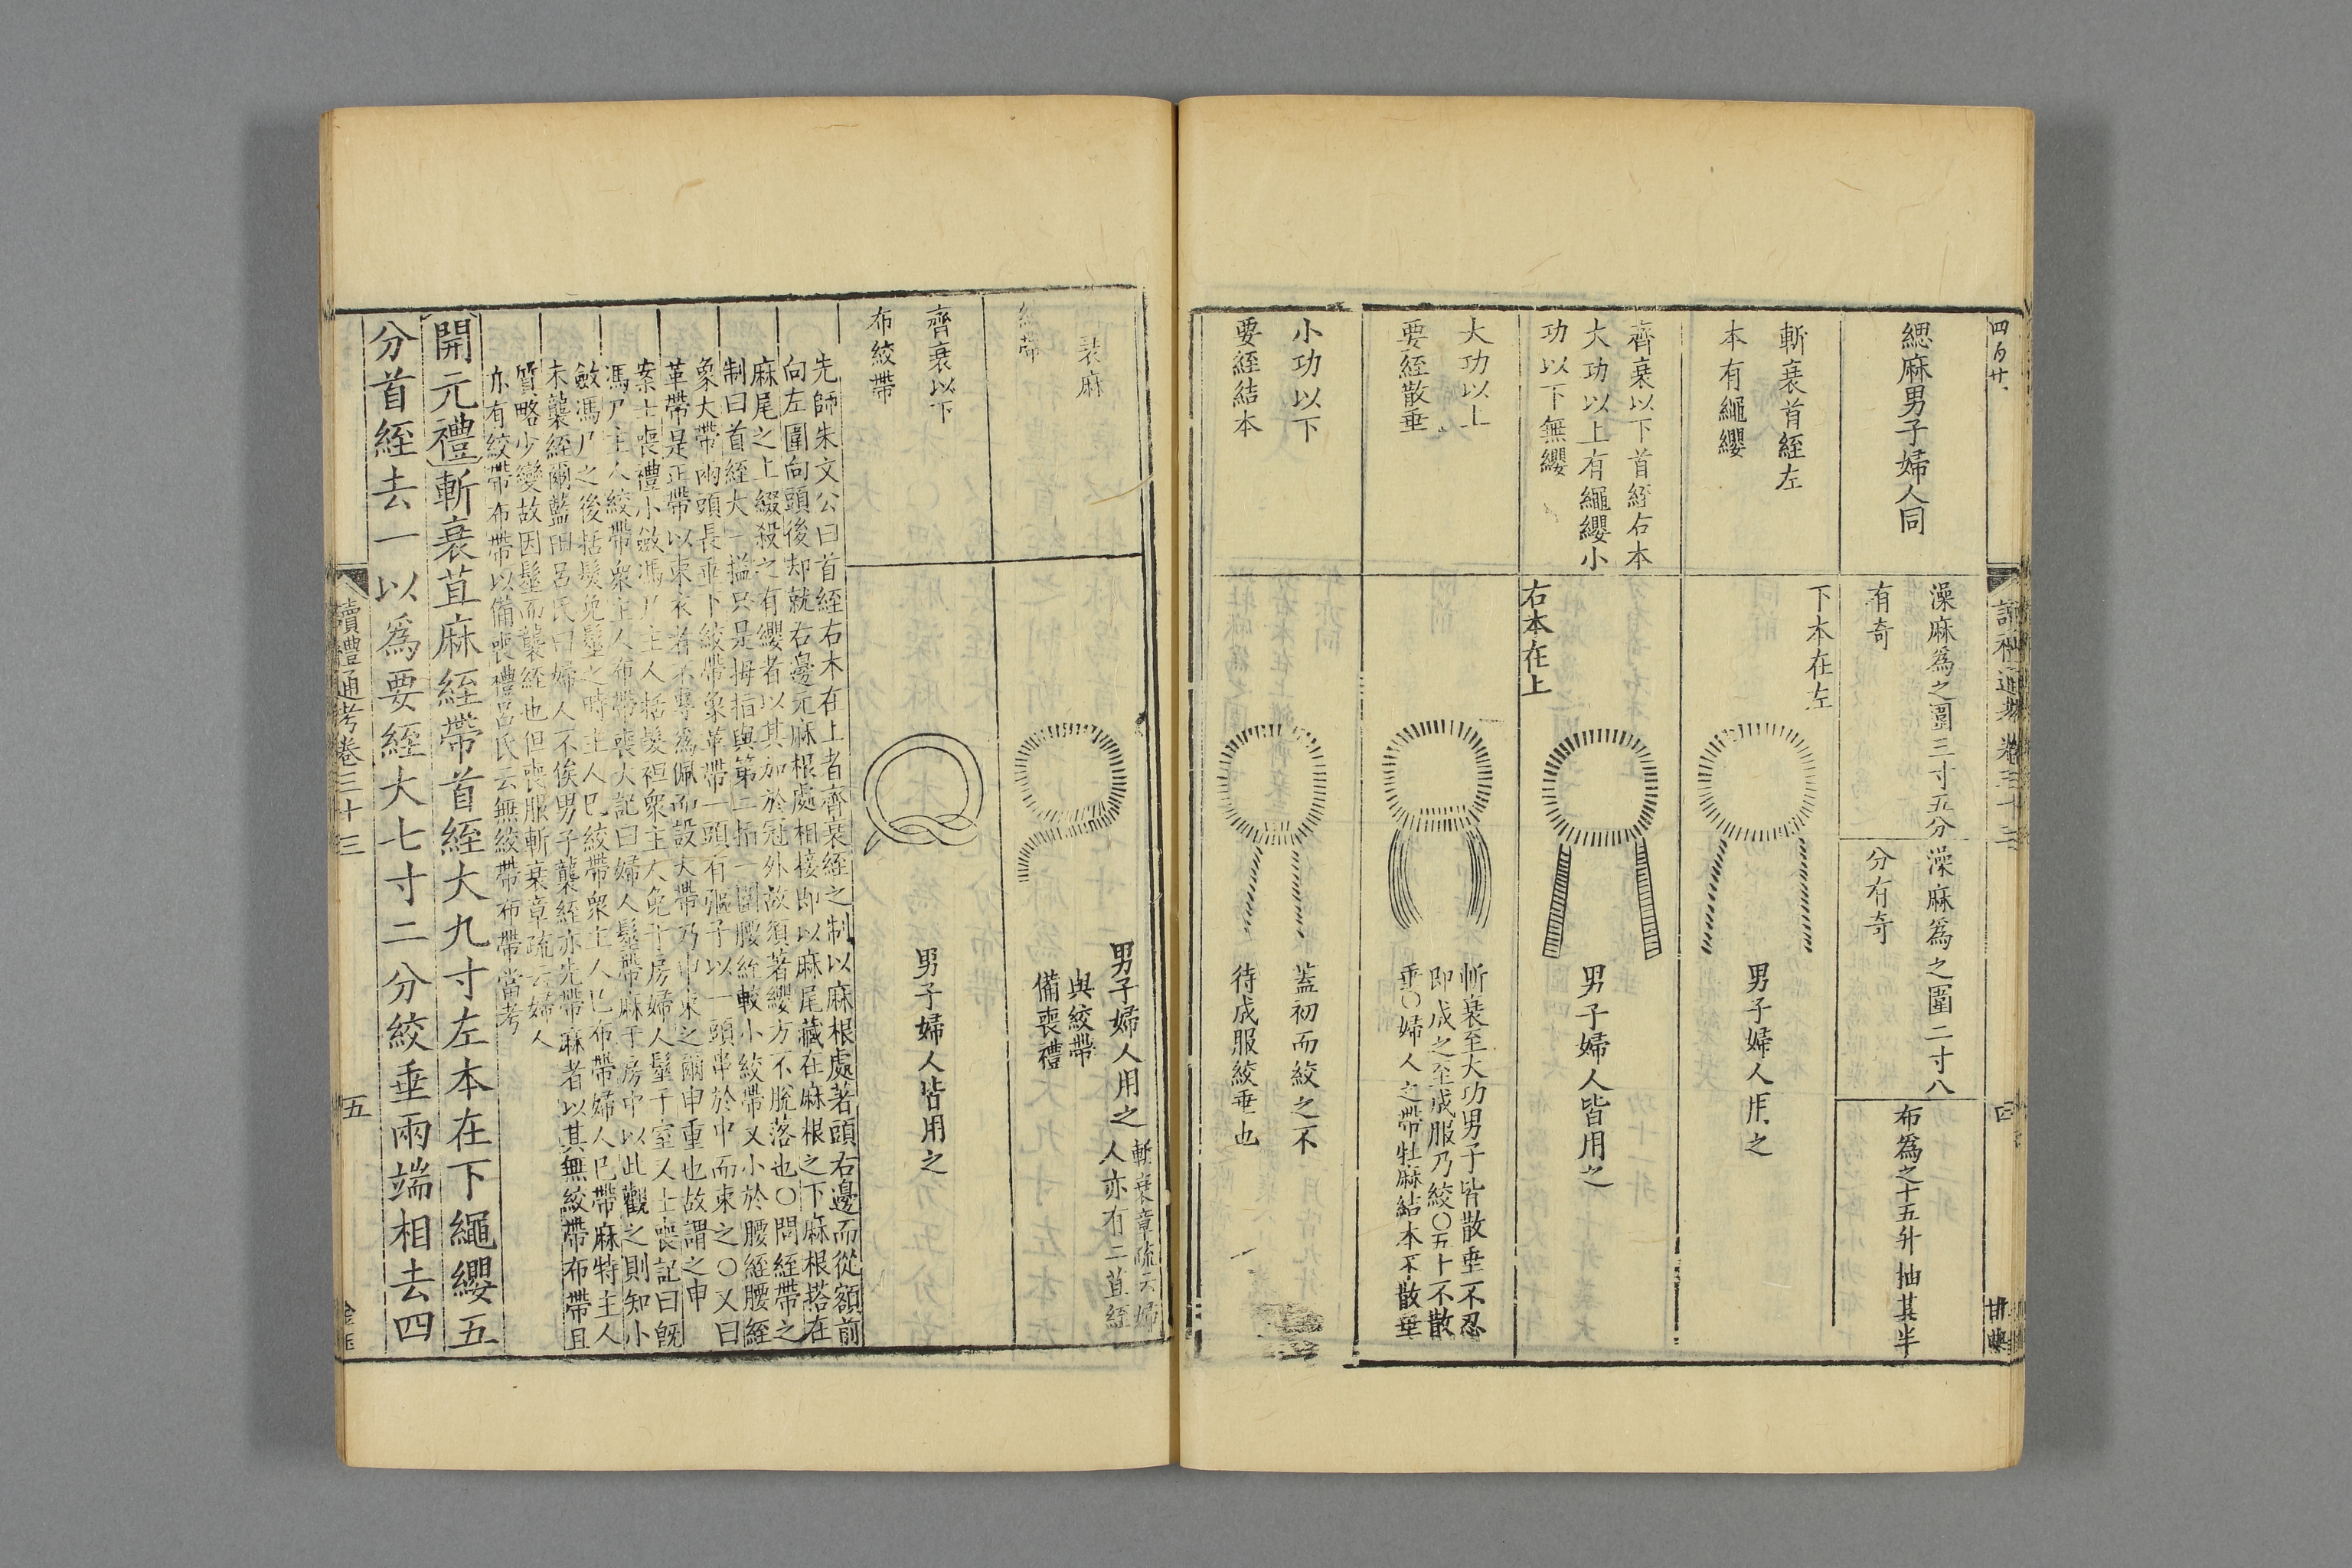 四百廿
讀禮通考卷三十三
四
緦麻男子婦人同
澡麻爲之圍三寸五分
有奇
澡麻爲之圍二寸八
分有奇
布爲之十五升抽其半
斬衰首絰左
本有繩纓
下本在左
男子婦人用之
齊衰以下首絰右本
大功以上有繩纓小
功以下無纓
右本在上
男子婦人皆用之
大功以上
要絰散垂
斬衰至大功男子皆散垂不忍
即成之至成服乃絞〇五十不散
垂〇婦人之帶牡麻結本不散垂
小功以下
要絰結本
蓋初而絞之不
待成服絞垂也
衰麻
絞帶
男子婦人用之
斬衰章疏云婦
人亦有二苴絰
與絞帶
備喪禮
齊衰以下
布絞帶
男子婦人皆用之
先師朱文公曰首絰右本在上者齊衰絰之制以麻根處著頭右邊而從額前
向左圍向頭後却就右邊元麻根處相接即以麻尾藏在麻根之下麻根搭在
麻尾之上綴殺之有纓者以其加於冠外故須著纓方不脫落也〇問絰帶之
制曰首絰大一搤只是拇指與第二指一圍腰絰較小絞帶又小於腰絰腰絰
象大帶兩頭長垂下絞帶象革帶一頭有彄子以一頭串於中而束之〇又曰
革帶是正帶以束衣者不專爲佩而設大帶乃申束之爾申重也故謂之申
案士喪禮小斂馮尸主人括髮袒衆主人免于房婦人髽于室又士喪記曰旣
馮尸主人絞帶衆主人布帶喪大記曰婦人髽帶麻于房中以此觀之則知小
斂馮尸之後括髮免髽之時主人已絞帶衆主人已布帶婦人已帶麻特主人
未襲絰爾藍田呂氏曰婦人不俟男子襲絰亦先帶麻者以其無絞帶布帶且
質略少變故因髽而襲絰也但喪服斬衰章疏云婦人
亦有絞帶布帶以備喪禮呂氏云無絞帶布帶當考
開元禮斬衰苴麻絰帶首絰大九寸左本在下繩纓五
分首絰去一以爲要絰大七寸二分絞垂兩端相去四
讀禮通考卷三十三
五